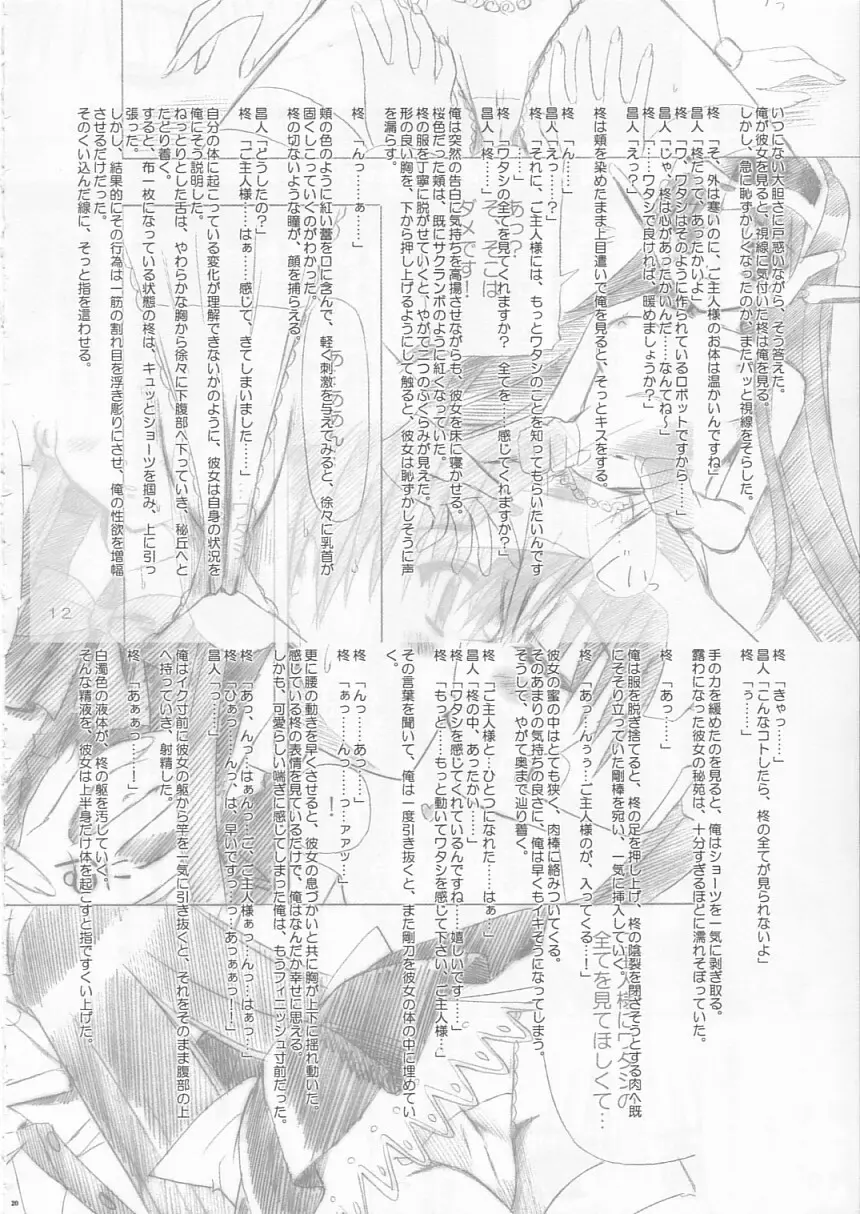 いつにない大胆さに戸惑いながら、そう答えた。
俺が彼女を見ると、視線に気付いた柊は俺を見る。
しかし、急に恥ずかしくなったのか、またパッと視線をそらした。
柊「そ、外は寒いのに、ご主人様のお体は温かいんですね」
昌人「柊だって、あったかいよ」
柊「ワ、ワタシはそのように作られているロボットですから……」
昌人「じゃ、柊は心があったかいんだ……なんてね～」
柊「……ワタシで良ければ、暖めましょうか？」
昌人「えっ？」
柊は頬を染めたまま上目遣いで俺を見ると、そっとキスをする。
柊「ん……」
昌人「えっ……？」
柊「それに、ご主人様には、もっとワタシのことを知ってもらいたいんです……」
柊「ワタシの全てを見てくれますか？　全てを……感じてくれますか？」
昌人「柊…」
俺は突然の告白に気持ちを高揚させながらも、彼女を床に寝かせる。
桜色だった頬は、既にサクランボのように紅くなっていた。
柊の服を丁寧に脱がせていくと、やがて二つのふくらみが見えた。
形の良い胸を、下から押し上げるようにして触ると、彼女は恥ずかしそうに声
を漏らす。
柊　「んっ……ぁ……」
頬の色のように紅い蕾を口に含んで、軽く刺激を与えてみると、徐々に乳首が
固くしこっていくのがわかった。
柊の切ないような瞳が、顔を捕らえる。
昌人「どうしたの？」
柊　「ご主人様……はぁ……感じて、きてしまいました……」
自分の体に起こっている変化が理解できないかのように、彼女は自身の状況を
俺にそう説明した。
ねっとりとした舌は、やわらかな胸から徐々に下腹部へ下っていき、秘丘へと
たどり着く。
すると、布一枚になっている状態の柊は、キュッとショーツを掴み、上に引っ
張った。
しかし、結果的にその行為は一筋の割れ目を浮き彫りにさせ、俺の性欲を増幅
させるだけだった。
そのくい込んだ線に、そっと指を這わせる。
柊　「きゃっ……」
昌人「こんなコトしたら、柊の全てが見られないよ」
柊　「ぅ……」
手の力を緩めたのを見ると、俺はショーツを一気に剥ぎ取る。
露わになった彼女の秘苑は、十分すぎるほどに濡れそぼっていた。
柊　「あっ……」
俺は服を脱ぎ捨てると、柊の足を押し上げ、柊の陰裂を閉ざそうとする肉へ既
にそそり立っていた剛棒を宛い、一気に挿入していく。
柊　「あっ……んぅぅ…ご主人様のが、入ってくる…！」
彼女の蜜の中はとても狭く、肉棒に絡みついてくる。
そのあまりの気持ちの良さに、俺は早くもイキそうになってしまう。
そうして、やがて奥まで辿り着く。
柊　「ご主人様と…ひとつになれた……はぁ…」
昌人「柊の中、あったかい……」
柊　「ワタシを感じてくれているんですね……嬉しいです……」
柊　「もっと……もっと動いてワタシを感じて下さい、ご主人様…」
その言葉を聞いて、俺は一度引き抜くと、また剛刀を彼女の体の中に埋めてい
く。
柊　「んっ……あっ……」
柊　「ぁっ……んっ……っ…アァッ…」
更に腰の動きを早くさせると、彼女の息づかいと共に胸が上下に揺れ動いた。
感じている柊の表情を見ているだけで、俺はなんだか幸せに思える。
しかも、可愛らしい喘ぎに感じてしまった俺は、もうフィニッシュ寸前だった。
柊　「あっ、んっ…はぁんっ…ご、ご主人様ぁっ…んっ…はぁっ…」
柊　「ひぁっ……んっ、は、早いですっ…っ…あっぁぁっ！！」
昌人「っ……」
俺はイク寸前に彼女の躯から竿を一気に引き抜くと、それをそのまま腹部の上
へ持っていき、射精した。
柊　「あぁぁっ……！」
白濁色の液体が、柊の躯を汚していく。
そんな精液を、彼女は上半身だけ体を起こすと指ですくい上げた。
あっ？
そ、そこは
ダメです！
12
全てを見てほしくて…
20